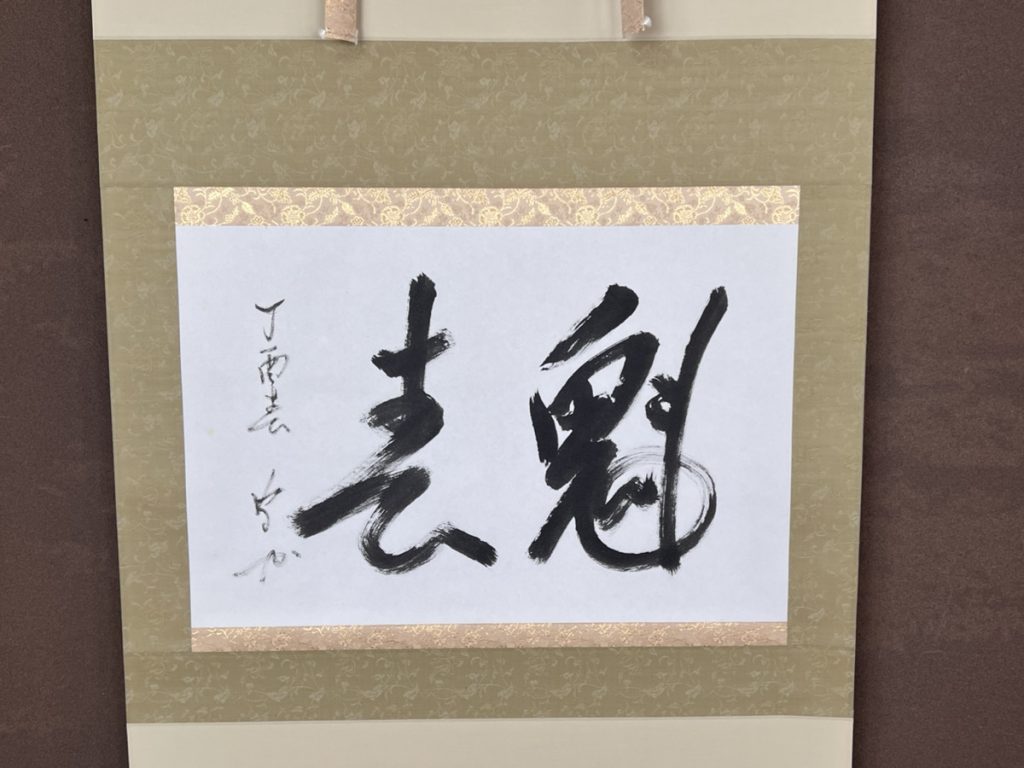 魁春
丁酉春